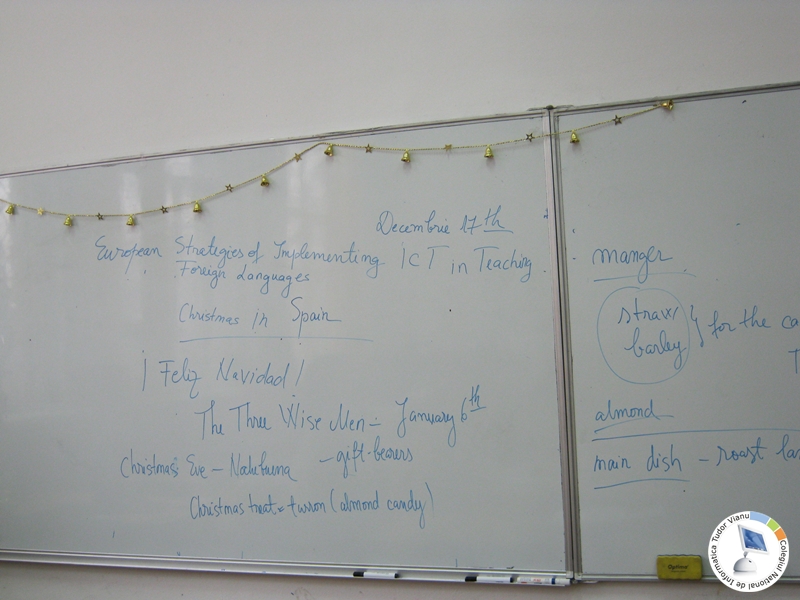 Decembrie 17th
European Strategies of Implementing ICT in Teaching
Foreign Languages
Christmas in Spain
¡ Feliz Navidad!
The Three Wise Men - January 6th
- gift-bearers
Christmas Eve - Nochebuena
Christmas treat = turron (almond candy)
manger
straw
barley } for the ca
T
almond
main dish - roast la
Optima
Colegiul National de Informatica Tudor Vianu